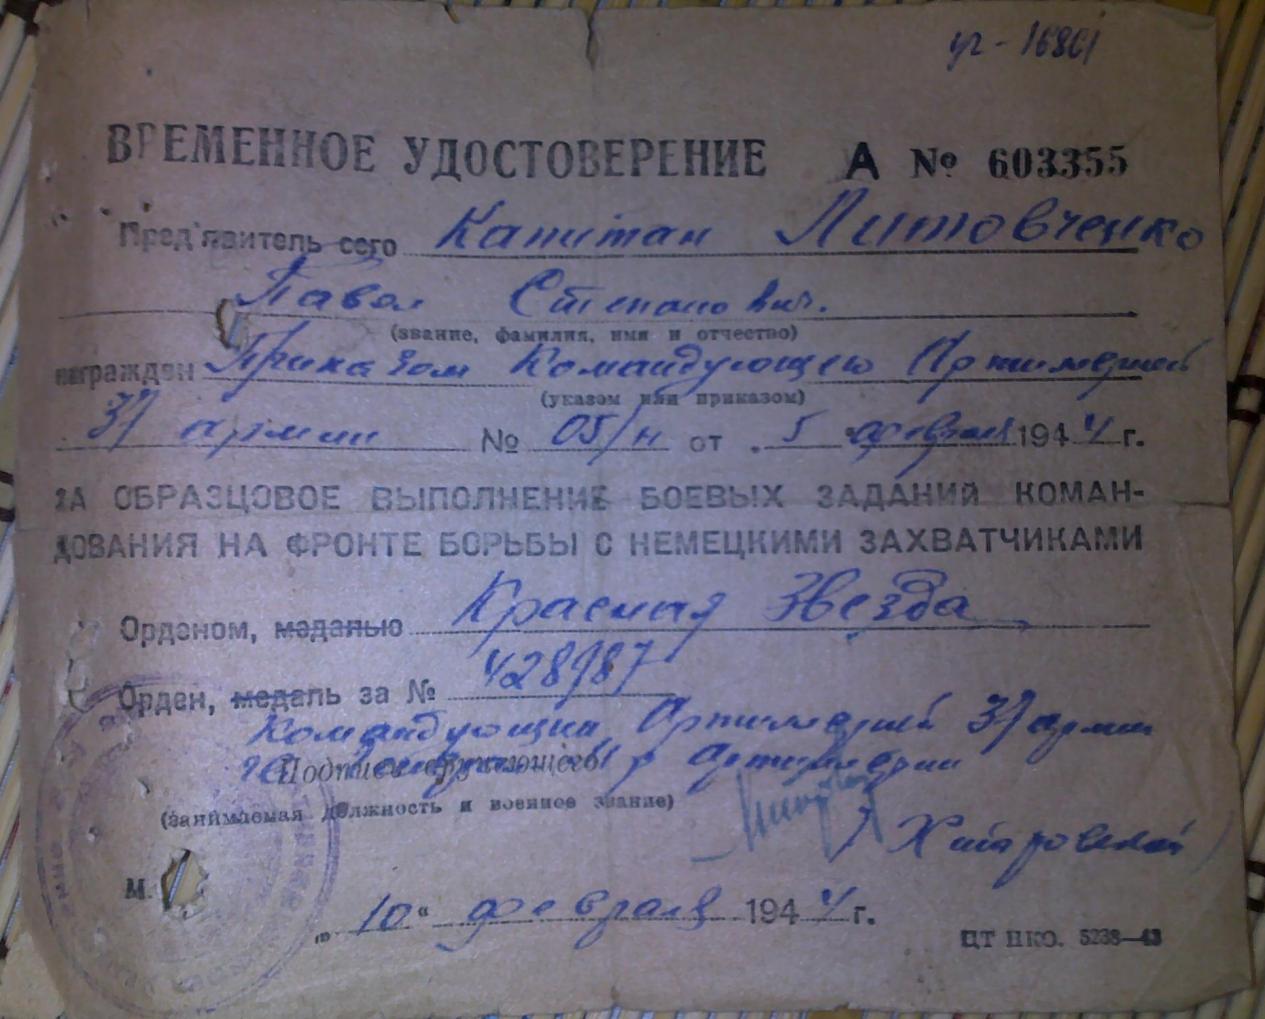 уг-16861
ВРЕМЕННОЕ УДОСТОВЕРЕНИЕ А № 603355
Пред'явитель сего Капитан Литовченко
Павел Степанович.
(звание, фамилия, имя и отчество)
награжден Приказом Командующего Артиллерией
(указом или приказом)
37 армии № 05/н от 5 февраля 1944 г.
ЗА ОБРАЗЦОВОЕ ВЫПОЛНЕНИЕ БОЕВЫХ ЗАДАНИЙ КОМАН-
ДОВАНИЯ НА ФРОНТЕ БОРЬБЫ С НЕМЕЦКИМИ ЗАХВАТЧИКАМИ
Орденом, медалью Красная Звезда
Орден, медаль за № 428987
Командующий Артиллерией 37 армии
Подпись вручающего артиллерии
(занимаемая должность и военное звание)
/Хитаровский/
М.
„10“ февраля 1944 г.
ЦТ НКО. 5238—43